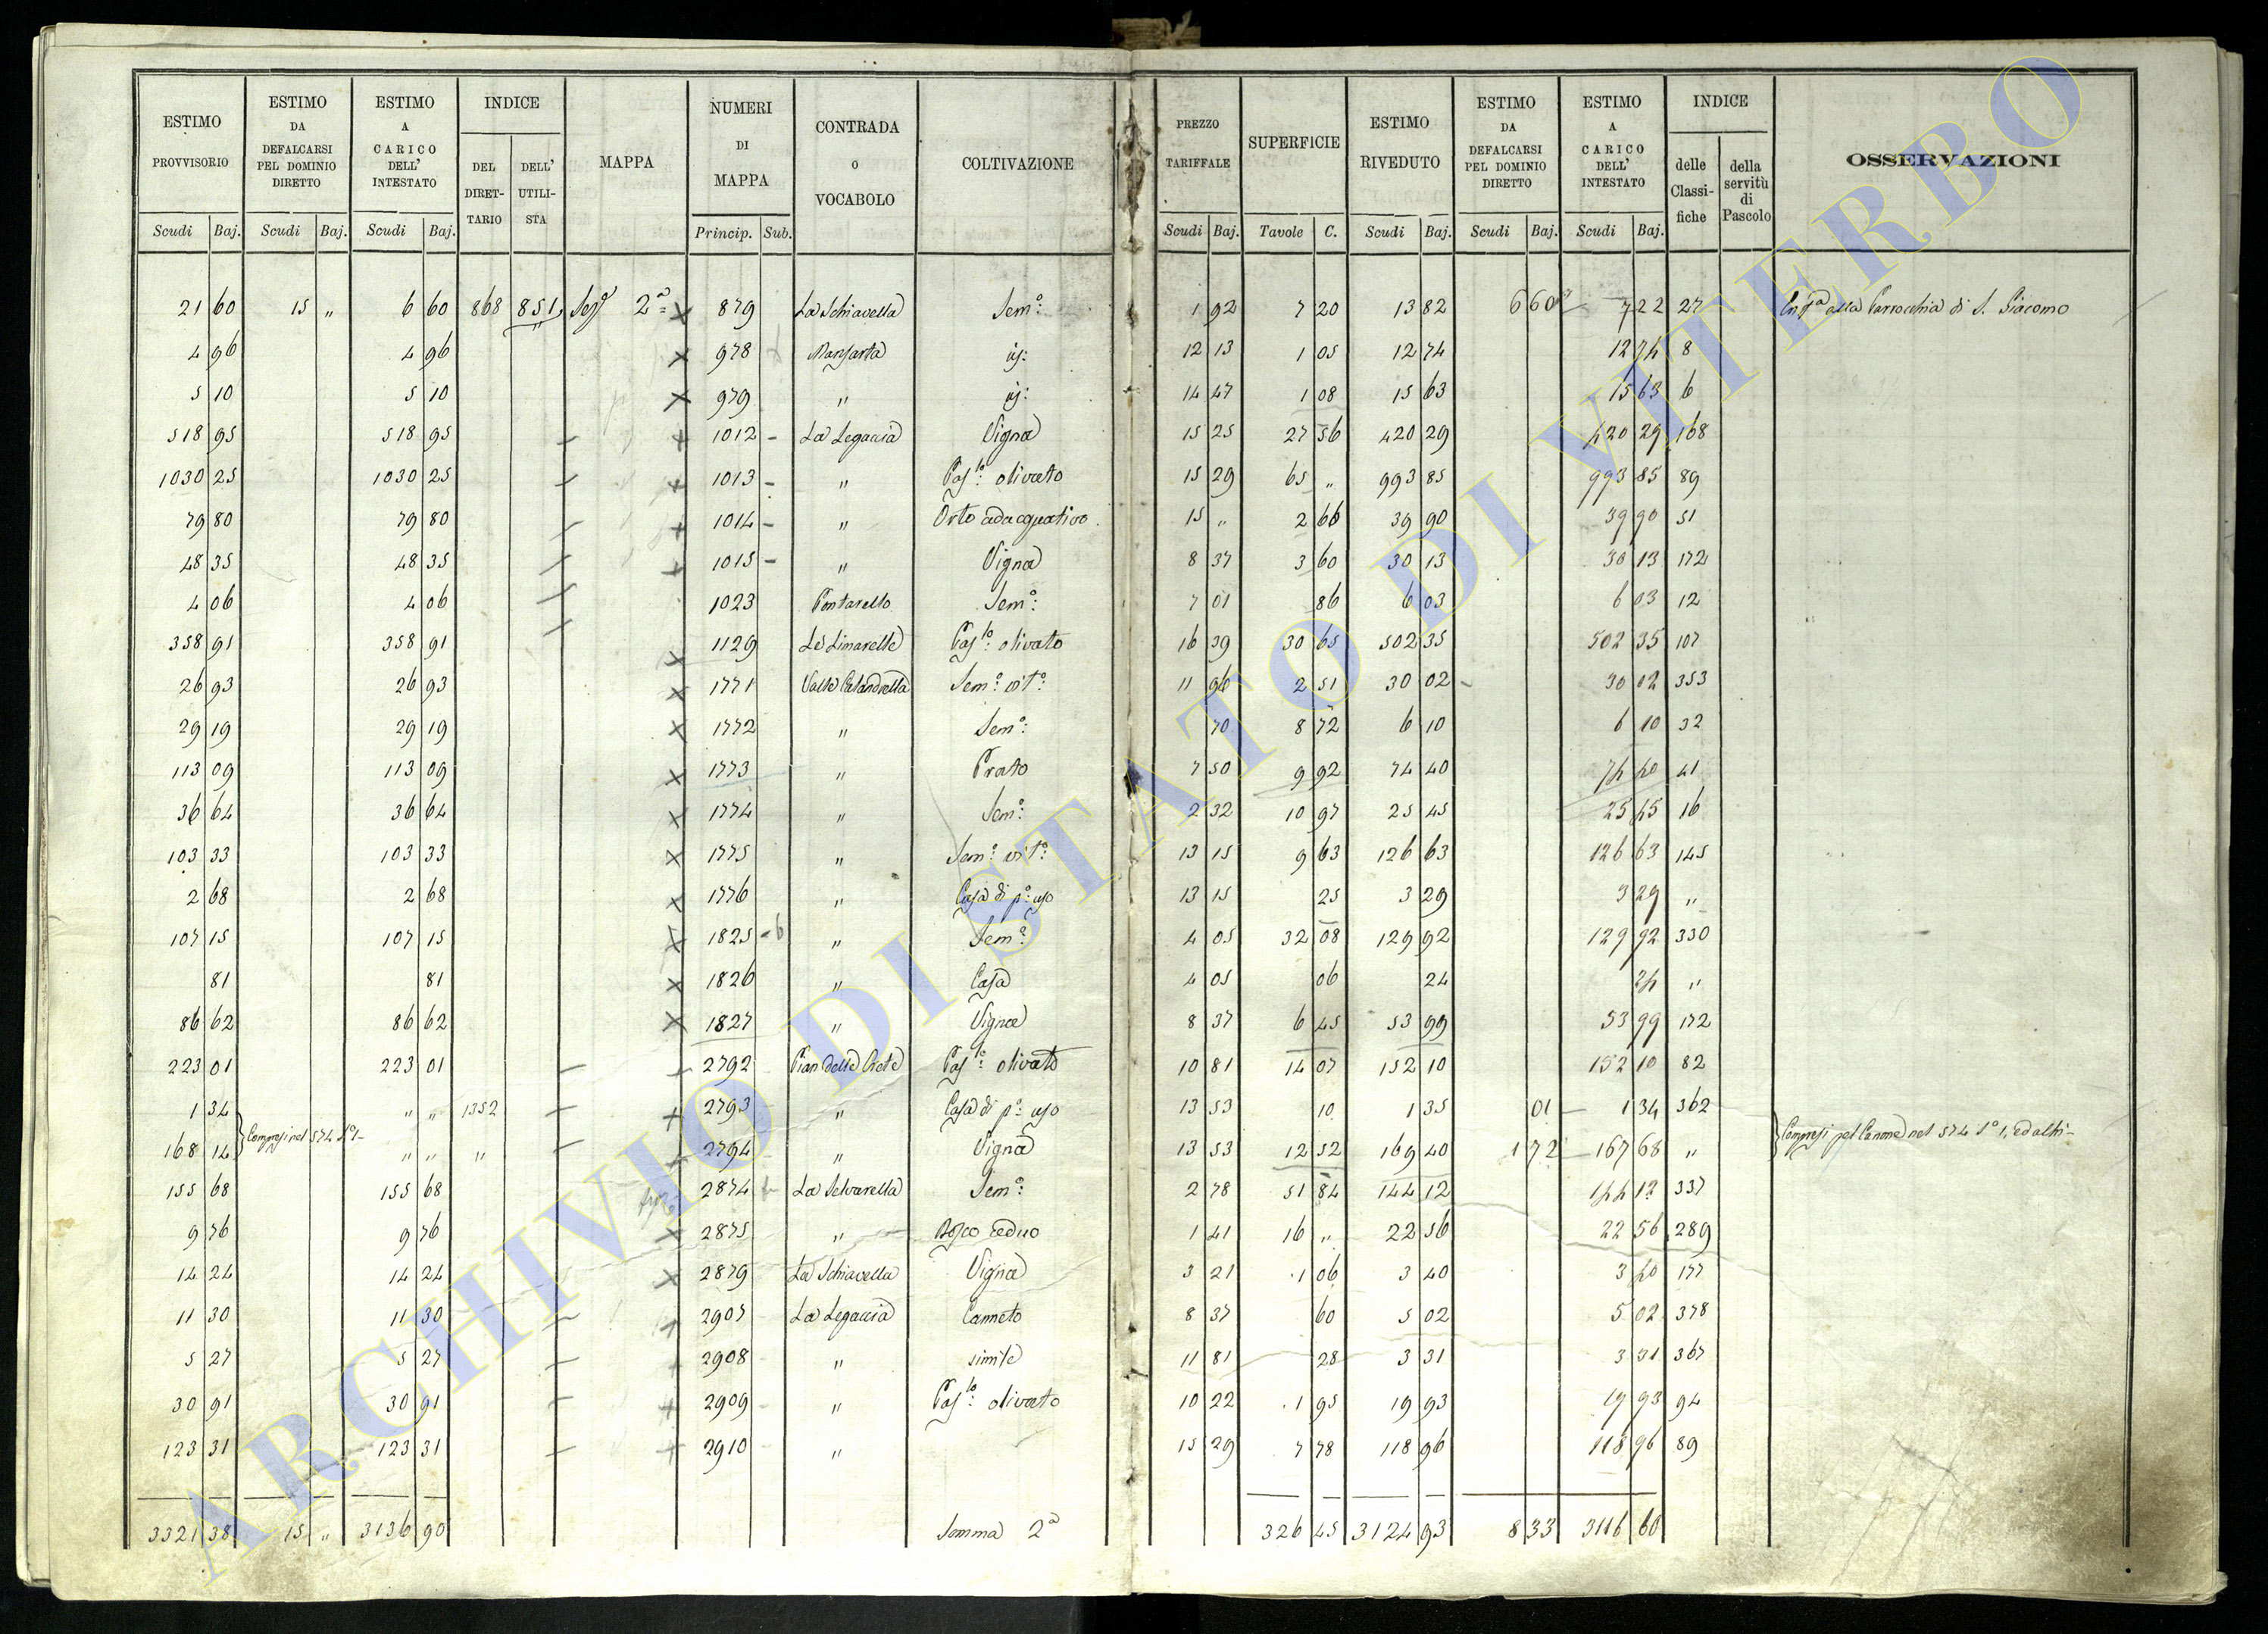 ESTIMO PROVVISORIO | ESTIMO DA DEFALCARSI PEL DOMINIO DIRETTO | ESTIMO A CARICO DELL' INTESTATO | INDICE DEL DIRETTARIO | DELL' UTILISTA | MAPPA | NUMERI DI MAPPA | CONTRADA O VOCABOLO | COLTIVAZIONE | PREZZO TARIFFALE | SUPERFICIE | ESTIMO RIVEDUTO | ESTIMO DA DEFALCARSI PEL DOMINIO DIRETTO | ESTIMO A CARICO DELL' INTESTATO | INDICE delle Classifiche | della servitù di Pascolo | OSSERVAZIONI
Scudi Baj. | Scudi Baj. | Scudi Baj. | Princip. Sub. | Scudi Baj. | Tavole C. | Scudi Baj. | Scudi Baj. | Scudi Baj.
21 60 | 15 " | 6 60 | 868 | 851 | 2ª | 879 | La Schiavella | Sem°: | 1 92 | 7 20 | 13 82 | 6 60 | 7 22 | 27 | alla Parrocchia di S. Giacomo
4 96 | 4 96 | 978 | 12 13 | 1 05 | 12 74 | 12 74 | 8
5 10 | 5 10 | 979 | " | 14 47 | 1 08 | 15 63 | 15 63 | 6
518 95 | 518 95 | 1012 | La Legaccia | Vigna | 15 25 | 27 56 | 420 29 | 420 29 | 168
1030 25 | 1030 25 | 1013 | " | Pas.to: olivato | 15 29 | 65 " | 993 85 | 993 85 | 89
79 80 | 79 80 | 1014 | " | Orto adacquativo | 15 " | 2 66 | 39 90 | 39 90 | 51
48 35 | 48 35 | 1015 | " | Vigna | 8 37 | 3 60 | 30 13 | 30 13 | 172
4 06 | 4 06 | 1023 | Pontarello | Sem°: | 7 01 | 86 | 6 03 | 6 03 | 12
358 91 | 358 91 | 1129 | Le Limarelle | Pas.to: olivato | 16 39 | 30 65 | 502 35 | 502 35 | 107
26 93 | 26 93 | 1771 | Valle Calandrella | Sem°: vit°: | 11 96 | 2 51 | 30 02 | 30 02 | 353
29 19 | 29 19 | 1772 | " | Sem°: | 70 | 8 72 | 6 10 | 6 10 | 32
113 09 | 113 09 | 1773 | " | Prato | 7 50 | 9 92 | 74 40 | 74 40 | 41
36 64 | 36 64 | 1774 | " | Sem°: | 2 32 | 10 97 | 25 45 | 25 45 | 16
103 33 | 103 33 | 1775 | " | Sem°: vit°: | 13 15 | 9 63 | 126 63 | 126 63 | 145
2 68 | 2 68 | 1776 | " | Casa di p°: uso | 13 15 | 25 | 3 29 | 3 29 | "
107 15 | 107 15 | 1825 | " | Sem°: | 4 05 | 32 08 | 129 92 | 129 92 | 330
81 | 81 | 1826 | " | Casa | 4 05 | 06 | 24 | 24 | "
86 62 | 86 62 | 1827 | " | Vigna | 8 37 | 6 45 | 53 99 | 53 99 | 172
223 01 | 223 01 | 2792 | Pian delle Crete | Pas.to: olivato | 10 81 | 14 07 | 152 10 | 152 10 | 82
1 34 | " " | 1352 | 2793 | " | Casa di p°: uso | 13 53 | 10 | 1 35 | 01 | 1 34 | 362
168 14 | Compresi nel 574 | " " | " | 2794 | " | Vigna | 13 53 | 12 52 | 169 40 | 1 72 | 167 68 | " | Compresi pel Canone nel 574 S° 1, ed altri
155 68 | 155 68 | 2874 | La Selvarella | Sem°: | 2 78 | 51 84 | 144 12 | 144 12 | 337
9 76 | 9 76 | 2875 | " | Bosco ceduo | 1 41 | 16 " | 22 56 | 22 56 | 289
14 24 | 14 24 | 2879 | La Schiavella | Vigna | 3 21 | 1 06 | 3 40 | 3 40 | 177
11 30 | 11 30 | 2907 | La Legaccia | Canneto | 8 37 | 60 | 5 02 | 5 02 | 378
5 27 | 5 27 | 2908 | " | simile | 11 81 | 28 | 3 31 | 3 31 | 367
30 91 | 30 91 | 2909 | " | Pas.to: olivato | 10 22 | 1 95 | 19 93 | 19 93 | 94
123 31 | 123 31 | 2910 | " | 15 29 | 7 78 | 118 96 | 118 96 | 89
3321 38 | 15 " | 3136 90 | Somma 2ª | 326 45 | 3124 93 | 8 33 | 3116 60
ARCHIVIO DI STATO DI VITERBO